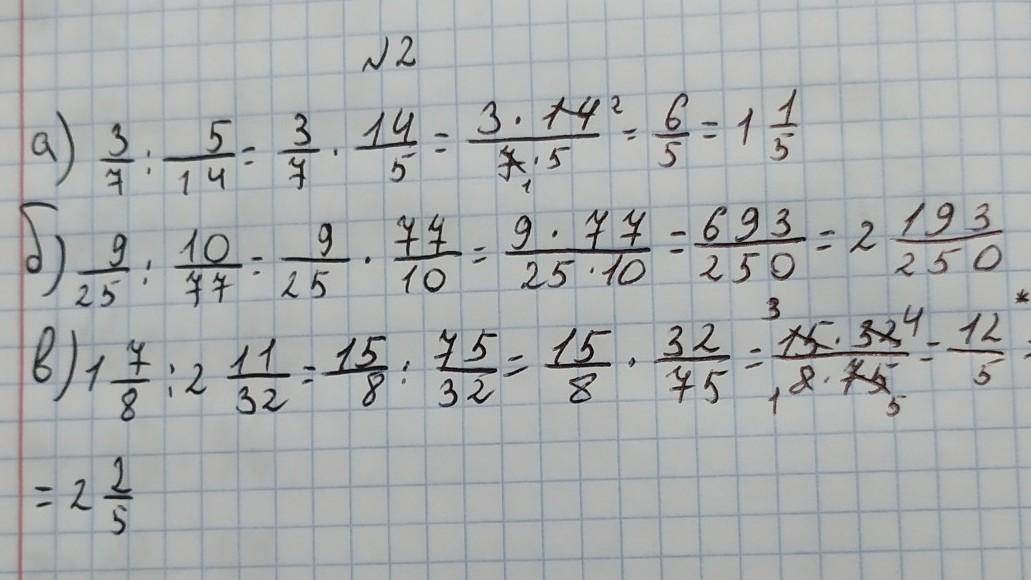 №2
а) 3/7 : 5/14 = 3/7 · 14/5 = 3 · 14² / 7₁ · 5 = 6/5 = 1 1/5
б) 9/25 : 10/77 = 9/25 · 77/10 = 9 · 77 / 25 · 10 = 693/250 = 2 193/250
в) 1 7/8 : 2 11/32 = 15/8 : 75/32 = 15/8 · 32/75 = ³15 · 32⁴ / ₁8 · 75₅ = 12/5 * =
= 2 2/5